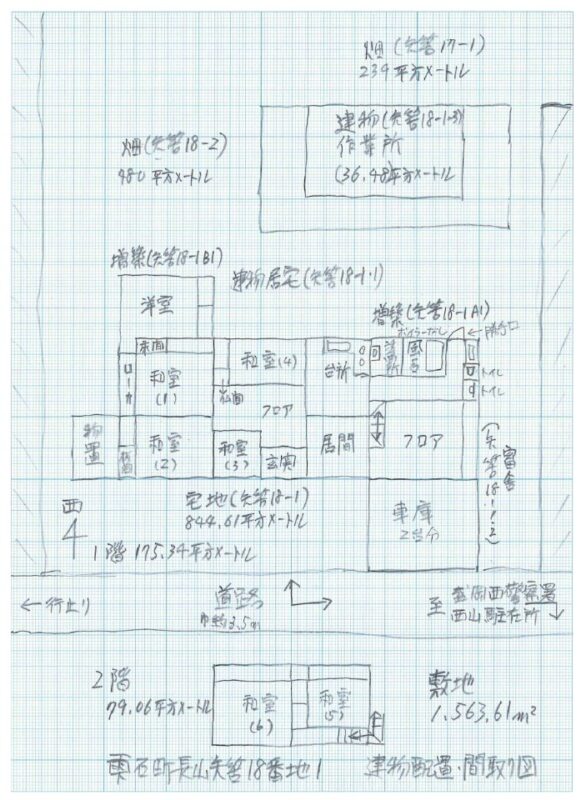 畑(矢筈17-1)
234平方メートル
建物(矢筈18-1-3)
作業所
(36.48)平方メートル
畑(矢筈18-2)
480平方メートル
増築(矢筈18-1B1)
建物居宅(矢筈18-1-1)
増築(矢筈18-1A1)
洋室
ボイラーなし
勝手口
床間
ローカ
和室
(1)
和室(4)
台所
洗面所
風呂
トイレ
トイレ
仏間
フロア
物置
和室
(2)
和室
(3)
玄関
居間
フロア
畜舎
(矢筈18-1-2)
宅地(矢筈18-1)
844.61平方メートル
車庫
2台分
西
4
1階 175.34平方メートル
←行止り
道路
巾約3.5m
至
盛岡西警察署
西山駐在所
2階
79.06平方メートル
和室
(6)
和室
(5)
敷地
1,563.61m²
雫石町長山矢筈18番地1
建物配置・間取り図